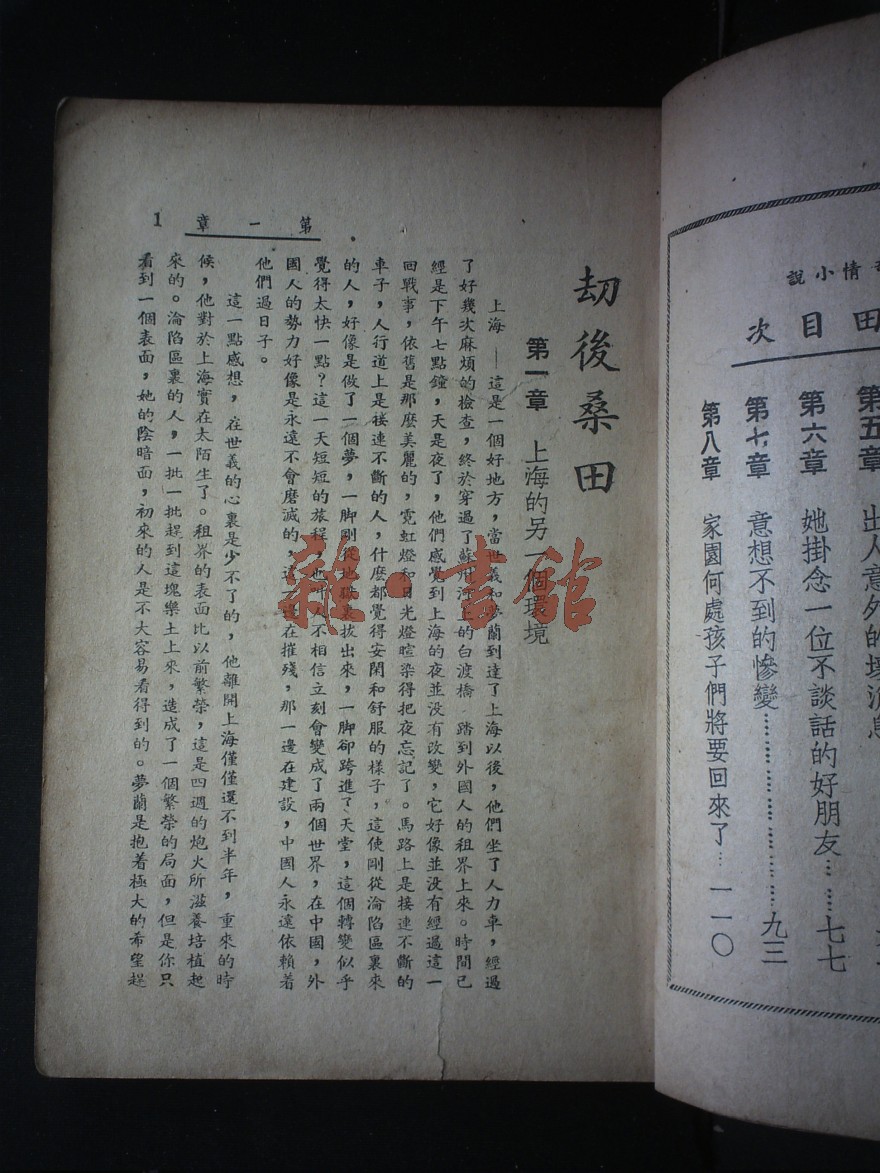 情小說
田目次
第五章 出人意外的壞消息
第六章 她掛念一位不談話的好朋友……七七
第七章 意想不到的慘變……………………九三
第八章 家園何處孩子們將要回來了…一一〇
第一章 1
劫後桑田
第一章 上海的另一個環境
上海——這是一個好地方,當世義和夢蘭到達了上海以後,他們坐了人力車,經過
了好幾次麻煩的檢查,終於穿過了蘇州河上的白渡橋 踏到外國人的租界上來。時間已
經是下午七點鐘,天是夜了,他們感覺到上海的夜並沒有改變,它好像並沒有經過這一
回戰事,依舊是那麼美麗的,霓虹燈和日光燈暄染得把夜忘記了。馬路上是接連不斷的
車子,人行道上是接連不斷的人,什麼都覺得安閑和舒服的樣子,這使剛從淪陷區裏來
的人,好像是做了一個夢,一脚剛從地獄裏拔出來,一脚卻跨進了天堂,這個轉變似乎
覺得太快一點?這一天短短的旅程,也叫人不相信立刻會變成了兩個世界,在中國,外
國人的勢力好像是永遠不會磨滅的,這一邊在摧殘,那一邊在建設,中國人永遠依賴着
他們過日子。
這一點感想,在世義的心裏是少不了的,他離開上海僅僅還不到半年,重來的時
候,他對於上海實在太陌生了。租界的表面比以前繁榮,這是四週的炮火所滋養培植起
來的。淪陷區裏的人,一批一批趕到這塊樂土上來,造成了一個繁榮的局面,但是你只
看到一個表面,她的陰暗面,初來的人是不大容易看得到的。夢蘭是抱着極大的希望趕
雜·書館